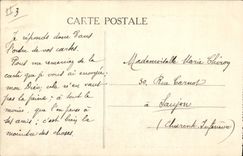 CARTE POSTALE
Je réponds donc dans
l'ordre de vos cartes.
Vous me remerciez de la
carte que je vous ai envoyée,
mon Dieu, cela n'en vaut
pas la peine ; à tout le
moins que l'on pense à
ses amis ; c'est bien la
moindre des choses.
Mademoiselle Marie
30, Rue Carnot
à Saujon
(Charente Inférieure)